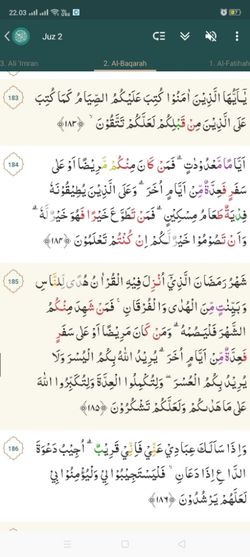 22.03
Juz 2
3. Ali 'Imran
2. Al-Baqarah
1. Al-Fatihah
183
يٰٓاَيُّهَا الَّذِيْنَ اٰمَنُوْا كُتِبَ عَلَيْكُمُ الصِّيَامُ كَمَا كُتِبَ
عَلَى الَّذِيْنَ مِنْ قَبْلِكُمْ لَعَلَّكُمْ تَتَّقُوْنَ ۙ ﴿١٨٣﴾
184
اَيَّامًا مَّعْدُوْدٰتٍ ۗ فَمَنْ كَانَ مِنْكُمْ مَّرِيْضًا اَوْ عَلٰى
سَفَرٍ فَعِدَّةٌ مِّنْ اَيَّامٍ اُخَرَ ۗ وَعَلَى الَّذِيْنَ يُطِيْقُوْنَهٗ
فِدْيَةٌ طَعَامُ مِسْكِيْنٍ ۗ فَمَنْ تَطَوَّعَ خَيْرًا فَهُوَ خَيْرٌ لَّهٗ ۗ
وَاَنْ تَصُوْمُوْا خَيْرٌ لَّكُمْ اِنْ كُنْتُمْ تَعْلَمُوْنَ ﴿١٨٤﴾
185
شَهْرُ رَمَضَانَ الَّذِيْٓ اُنْزِلَ فِيْهِ الْقُرْاٰنُ هُدًى لِّلنَّاسِ
وَبَيِّنٰتٍ مِّنَ الْهُدٰى وَالْفُرْقَانِ ۚ فَمَنْ شَهِدَ مِنْكُمُ
الشَّهْرَ فَلْيَصُمْهُ ۗ وَمَنْ كَانَ مَرِيْضًا اَوْ عَلٰى سَفَرٍ
فَعِدَّةٌ مِّنْ اَيَّامٍ اُخَرَ ۗ يُرِيْدُ اللّٰهُ بِكُمُ الْيُسْرَ وَلَا
يُرِيْدُ بِكُمُ الْعُسْرَ ۖ وَلِتُكْمِلُوا الْعِدَّةَ وَلِتُكَبِّرُوا اللّٰهَ
عَلٰى مَا هَدٰىكُمْ وَلَعَلَّكُمْ تَشْكُرُوْنَ ﴿١٨٥﴾
186
وَاِذَا سَاَلَكَ عِبَادِيْ عَنِّيْ فَاِنِّيْ قَرِيْبٌ ۗ اُجِيْبُ دَعْوَةَ
الدَّاعِ اِذَا دَعَانِ ۙ فَلْيَسْتَجِيْبُوْا لِيْ وَلْيُؤْمِنُوْا بِيْ
لَعَلَّهُمْ يَرْشُدُوْنَ ﴿١٨٦﴾